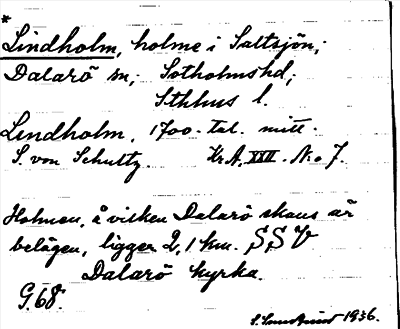 *
Lindholm, holme i Saltsjön;
Dalarö sn; Sotholms hd;
Sthlms l.
Lindholm. 1700-tal. mitt.
S. von Schultz. Kr.A. XXII. No 7.
Holmen, å vilken Dalarö skans är
belägen, ligger 2,1 km. SSV
Dalarö kyrka.
G.68.
1936.